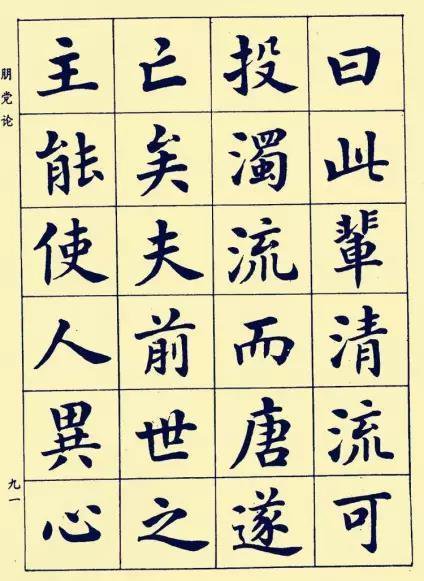 曰此輩清流可
投濁流而唐遂
亡矣夫前世之
主能使人異心
朋党论
九一